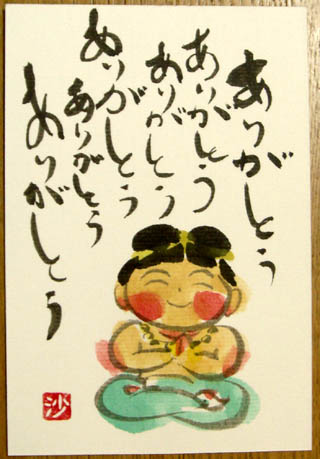 ありがとう
ありがとう
ありがとう
ありがとう
ありがとう
ありがとう
沙